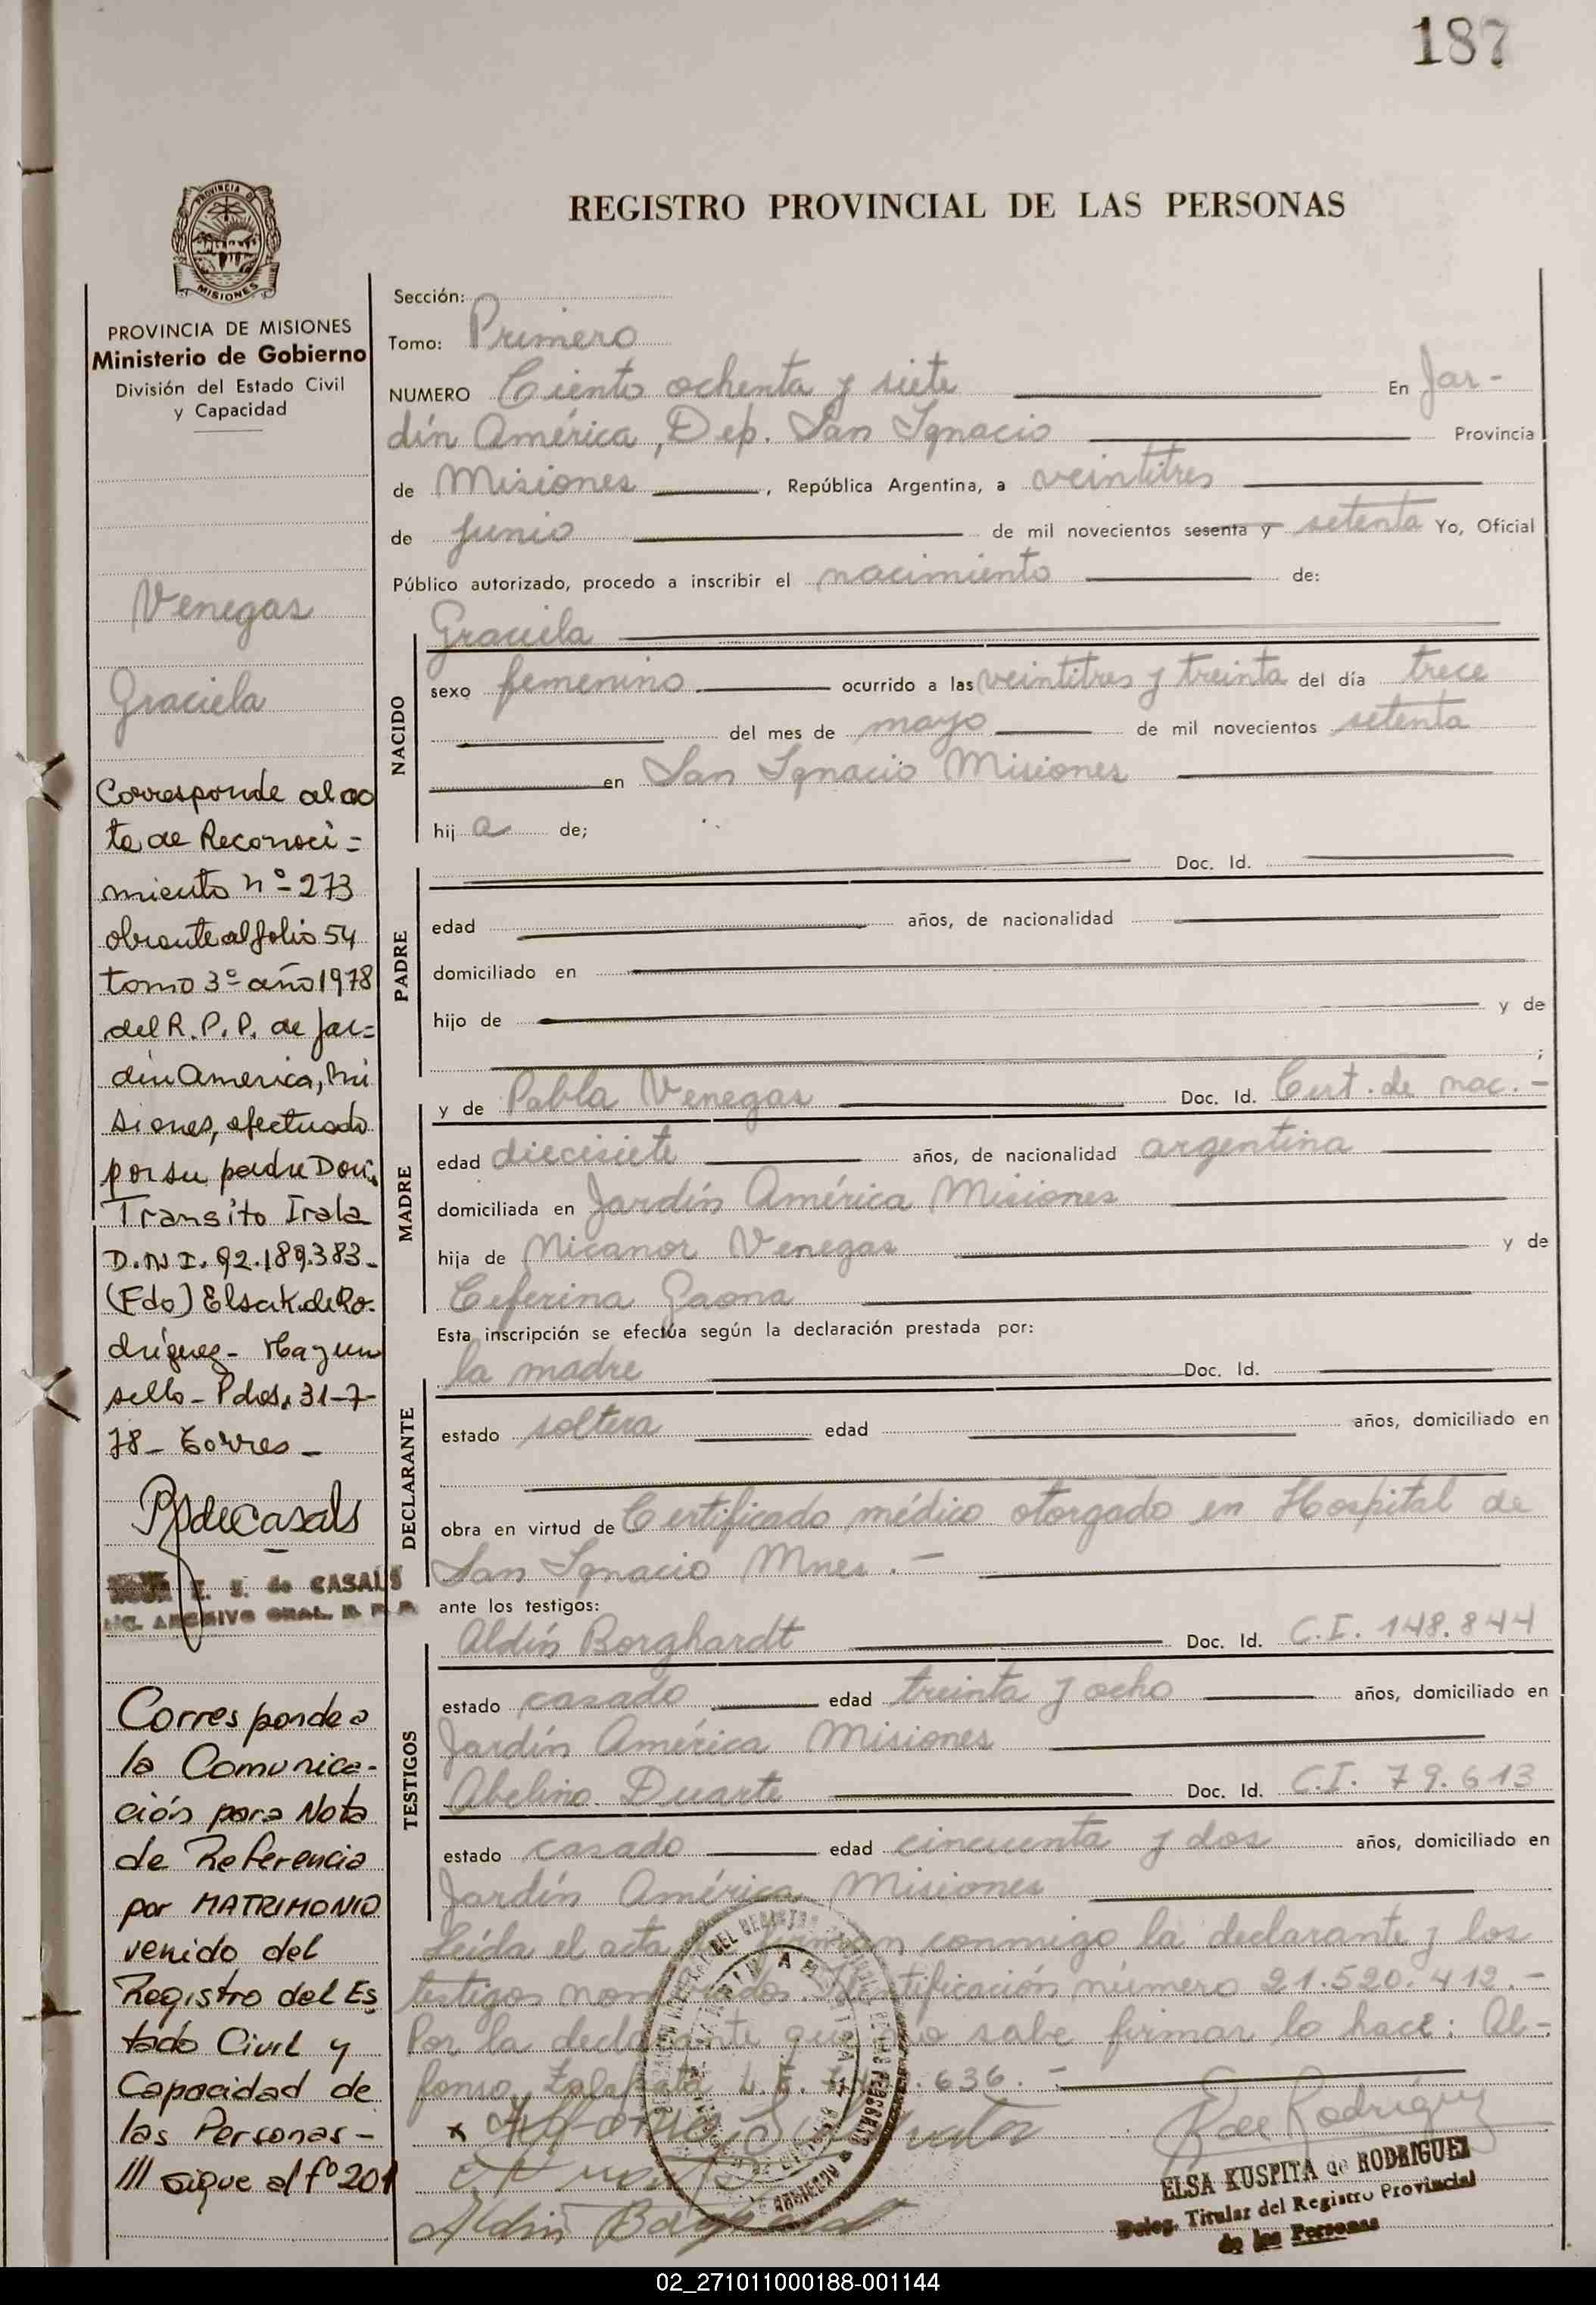 187
REGISTRO PROVINCIAL DE LAS PERSONAS
PROVINCIA DE
MISIONES
PROVINCIA DE MISIONES
Ministerio de Gobierno
División del Estado Civil
y Capacidad
Venegas
Graciela
Corresponde al ac
ta de Reconoci=
miento nº 273
obrante al folio 54
tomo 3º año 1978
del R.P.P. de Jar=
din America, Mi
siones, efectuado
por su padre Don:
Transito Irala
D.N.I. 92.189.383-
(Fdo) Elsa K. de Ro-
driguez- Hay un
sello- Pdas, 31-7-
78- Torres-
de CASALS
ARCHIVO GRAL. R. P. P.
Corresponde a
la Comunica-
ción para Nota
de Referencia
por MATRIMONIO
venido del
Registro del Es
tado Civil y
Capacidad de
las Personas-
/// sigue al fº 201
Sección:
Tomo: Primero
NUMERO Ciento ochenta y siete En Jar-
dín América, Dep. San Ignacio Provincia
de Misiones, República Argentina, a veintitres
de junio de mil novecientos sesenta y setenta Yo, Oficial
Público autorizado, procedo a inscribir el nacimiento de:
NACIDO
Graciela
sexo femenino ocurrido a las veintitres y treinta del día trece
del mes de mayo de mil novecientos setenta
en San Ignacio Misiones
hij a de;
PADRE
Doc. Id.
edad años, de nacionalidad
domiciliado en
hijo de y de
;
MADRE
y de Pabla Venegas Doc. Id. Cert. de nac.-
edad diecisiete años, de nacionalidad argentina
domiciliada en Jardín América Misiones
hija de Nicanor Venegas y de
Ceferina Gaona
Esta inscripción se efectúa según la declaración prestada por:
DECLARANTE
la madre Doc. Id.
estado soltera edad años, domiciliado en
obra en virtud de Certificado médico otorgado en Hospital de
San Ignacio Mnes.-
ante los testigos:
TESTIGOS
Aldín Borghardt Doc. Id. C.I. 148.844
estado casado edad treinta y ocho años, domiciliado en
Jardín América Misiones
Abelino Duarte Doc. Id. C.I. 79.613
estado casado edad cincuenta y dos años, domiciliado en
Jardín América Misiones
Leída el acta firman conmigo la declarante y los
testigos nombrados. Identificación número 21.520.412.-
Por la declarante que no sabe firmar lo hace: Al-
fonso L.E. 636.-
ELSA KUSPITA de RODRIGUEZ
Deleg. Titular del Registro Provincial
de las Personas
02_271011000188-001144